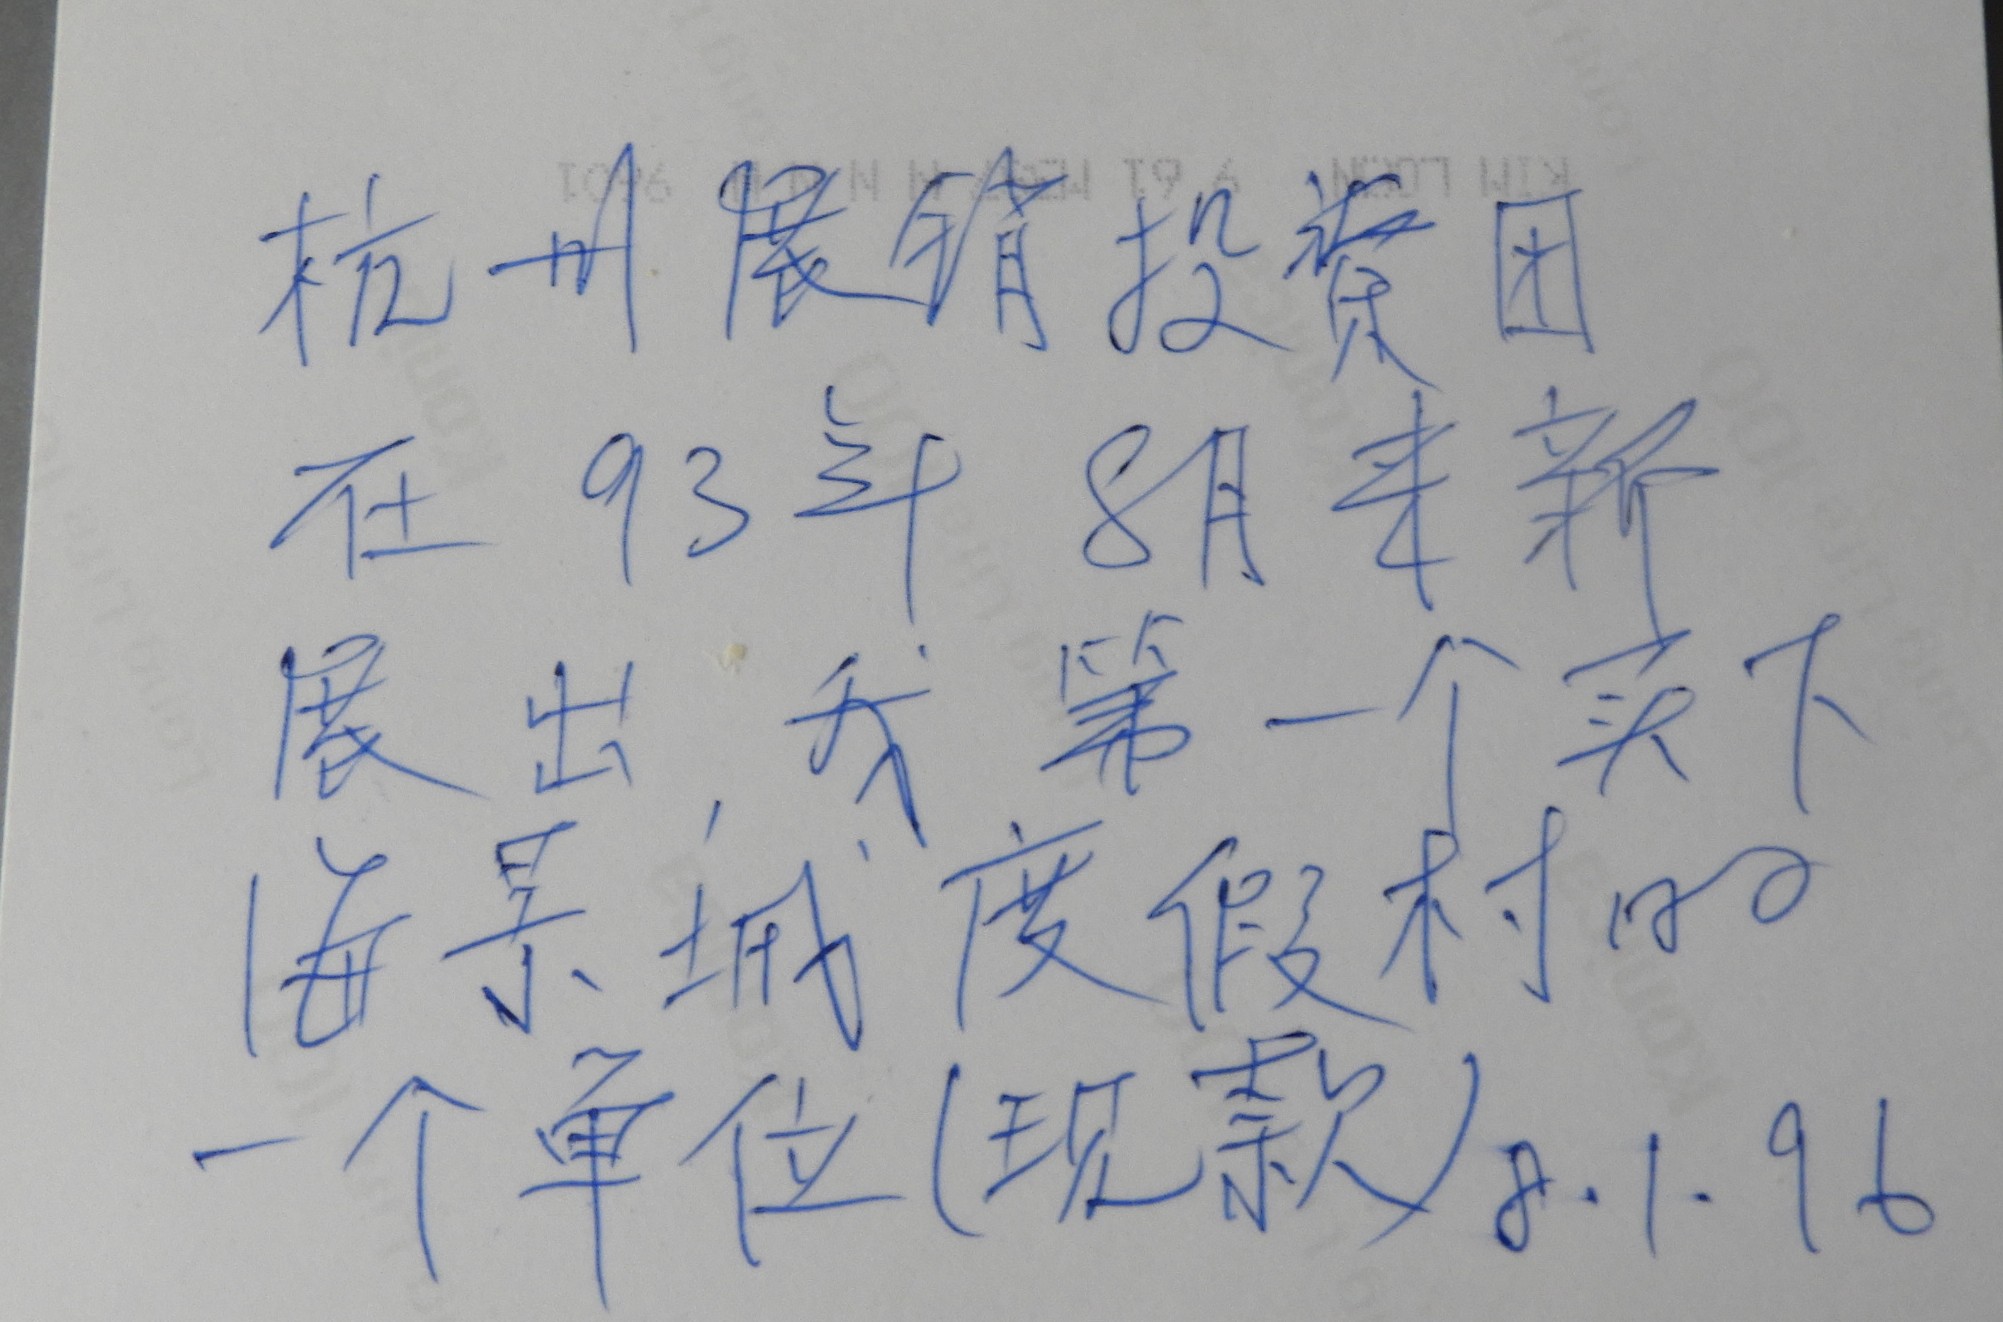 杭州展销投资团
在93年8月来新
展出,我第一个买下
海景城度假村的
一个单位(现款)8.1.96